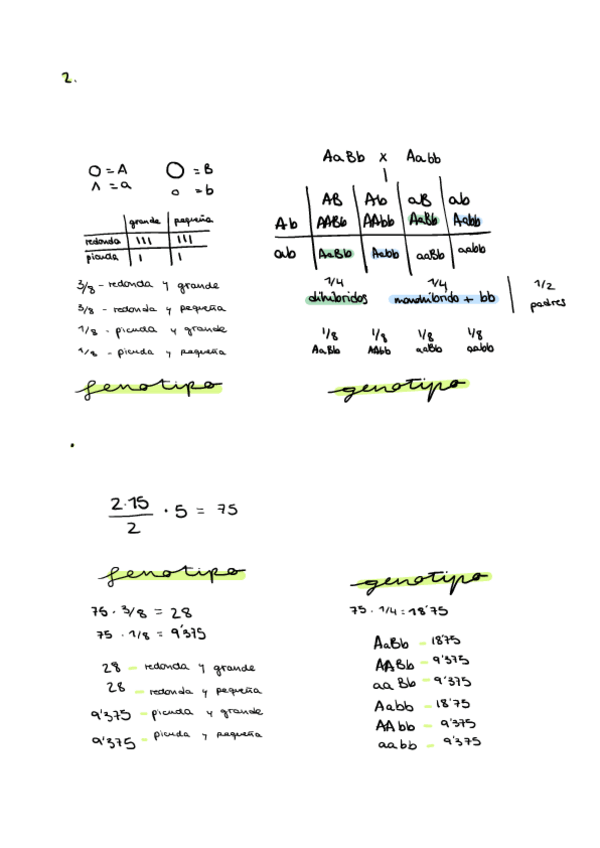 2.
O = A O = B
Λ = a o = b
grande pequeña
redonda III III
picuda I I
3/8 - redonda y grande
3/8 - redonda y pequeña
1/8 - picuda y grande
1/8 - picuda y pequeña
fenotipo
AaBb x Aabb
AB Ab aB ab
Ab AABb AAbb AaBb Aabb
ab AaBb Aabb aaBb aabb
1/4 1/4 1/2
dihíbridos monohíbrido + bb padres
1/8 1/8 1/8 1/8
AaBb AAbb aaBb aabb
genotipo
2·15
2
· 5 = 75
fenotipo
75 · 3/8 = 28
75 · 1/8 = 9'375
28 - redonda y grande
28 - redonda y pequeña
9'375 - picuda y grande
9'375 - picuda y pequeña
genotipo
75 · 1/4 = 18'75
AaBb - 1875
AABb - 9'375
aaBb - 9'375
Aabb - 18'75
AAbb - 9'375
aabb - 9'375